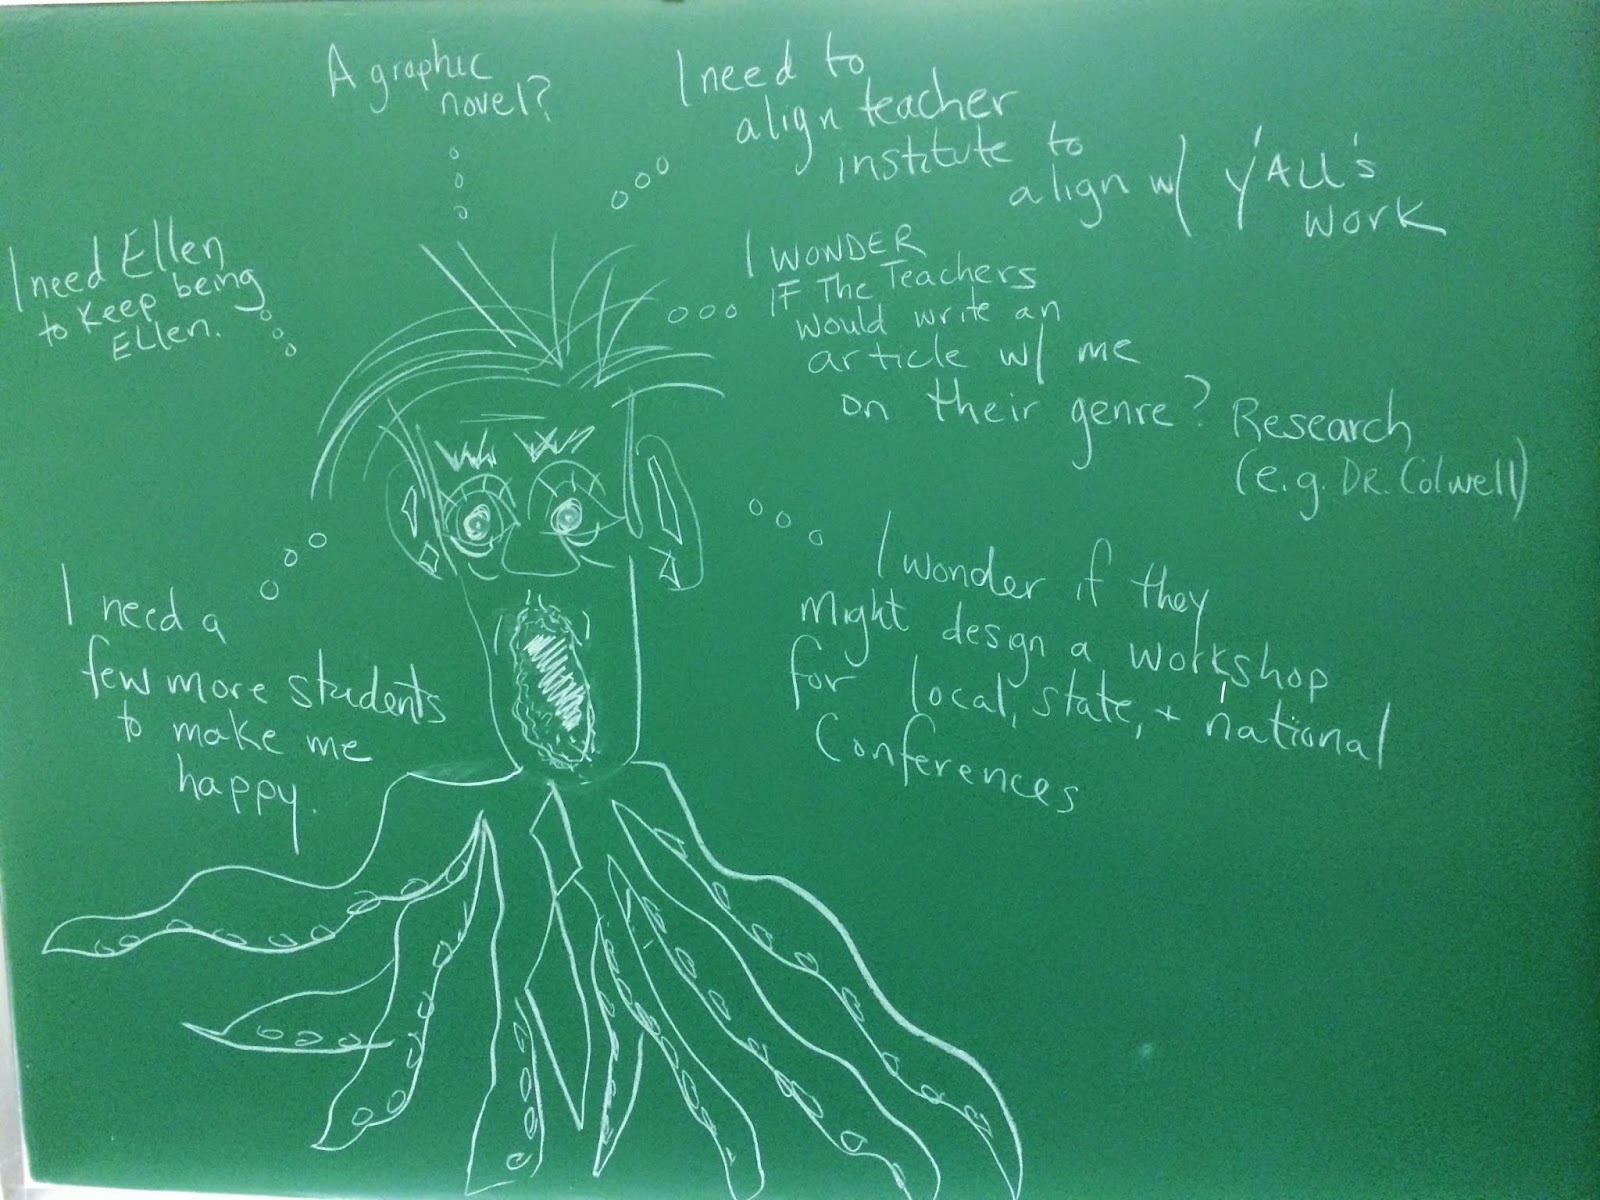 A graphic
novel?
I need to
align teacher
institute to
align w/ Y'ALL's
work
I need Ellen
to keep being
Ellen.
I WONDER
IF The Teachers
would write an
article w/ me
on their genre? Research
(e.g. DR. Colwell)
I need a
few more students
to make me
happy.
I wonder if they
Might design a workshop
for local, state, + national
Conferences